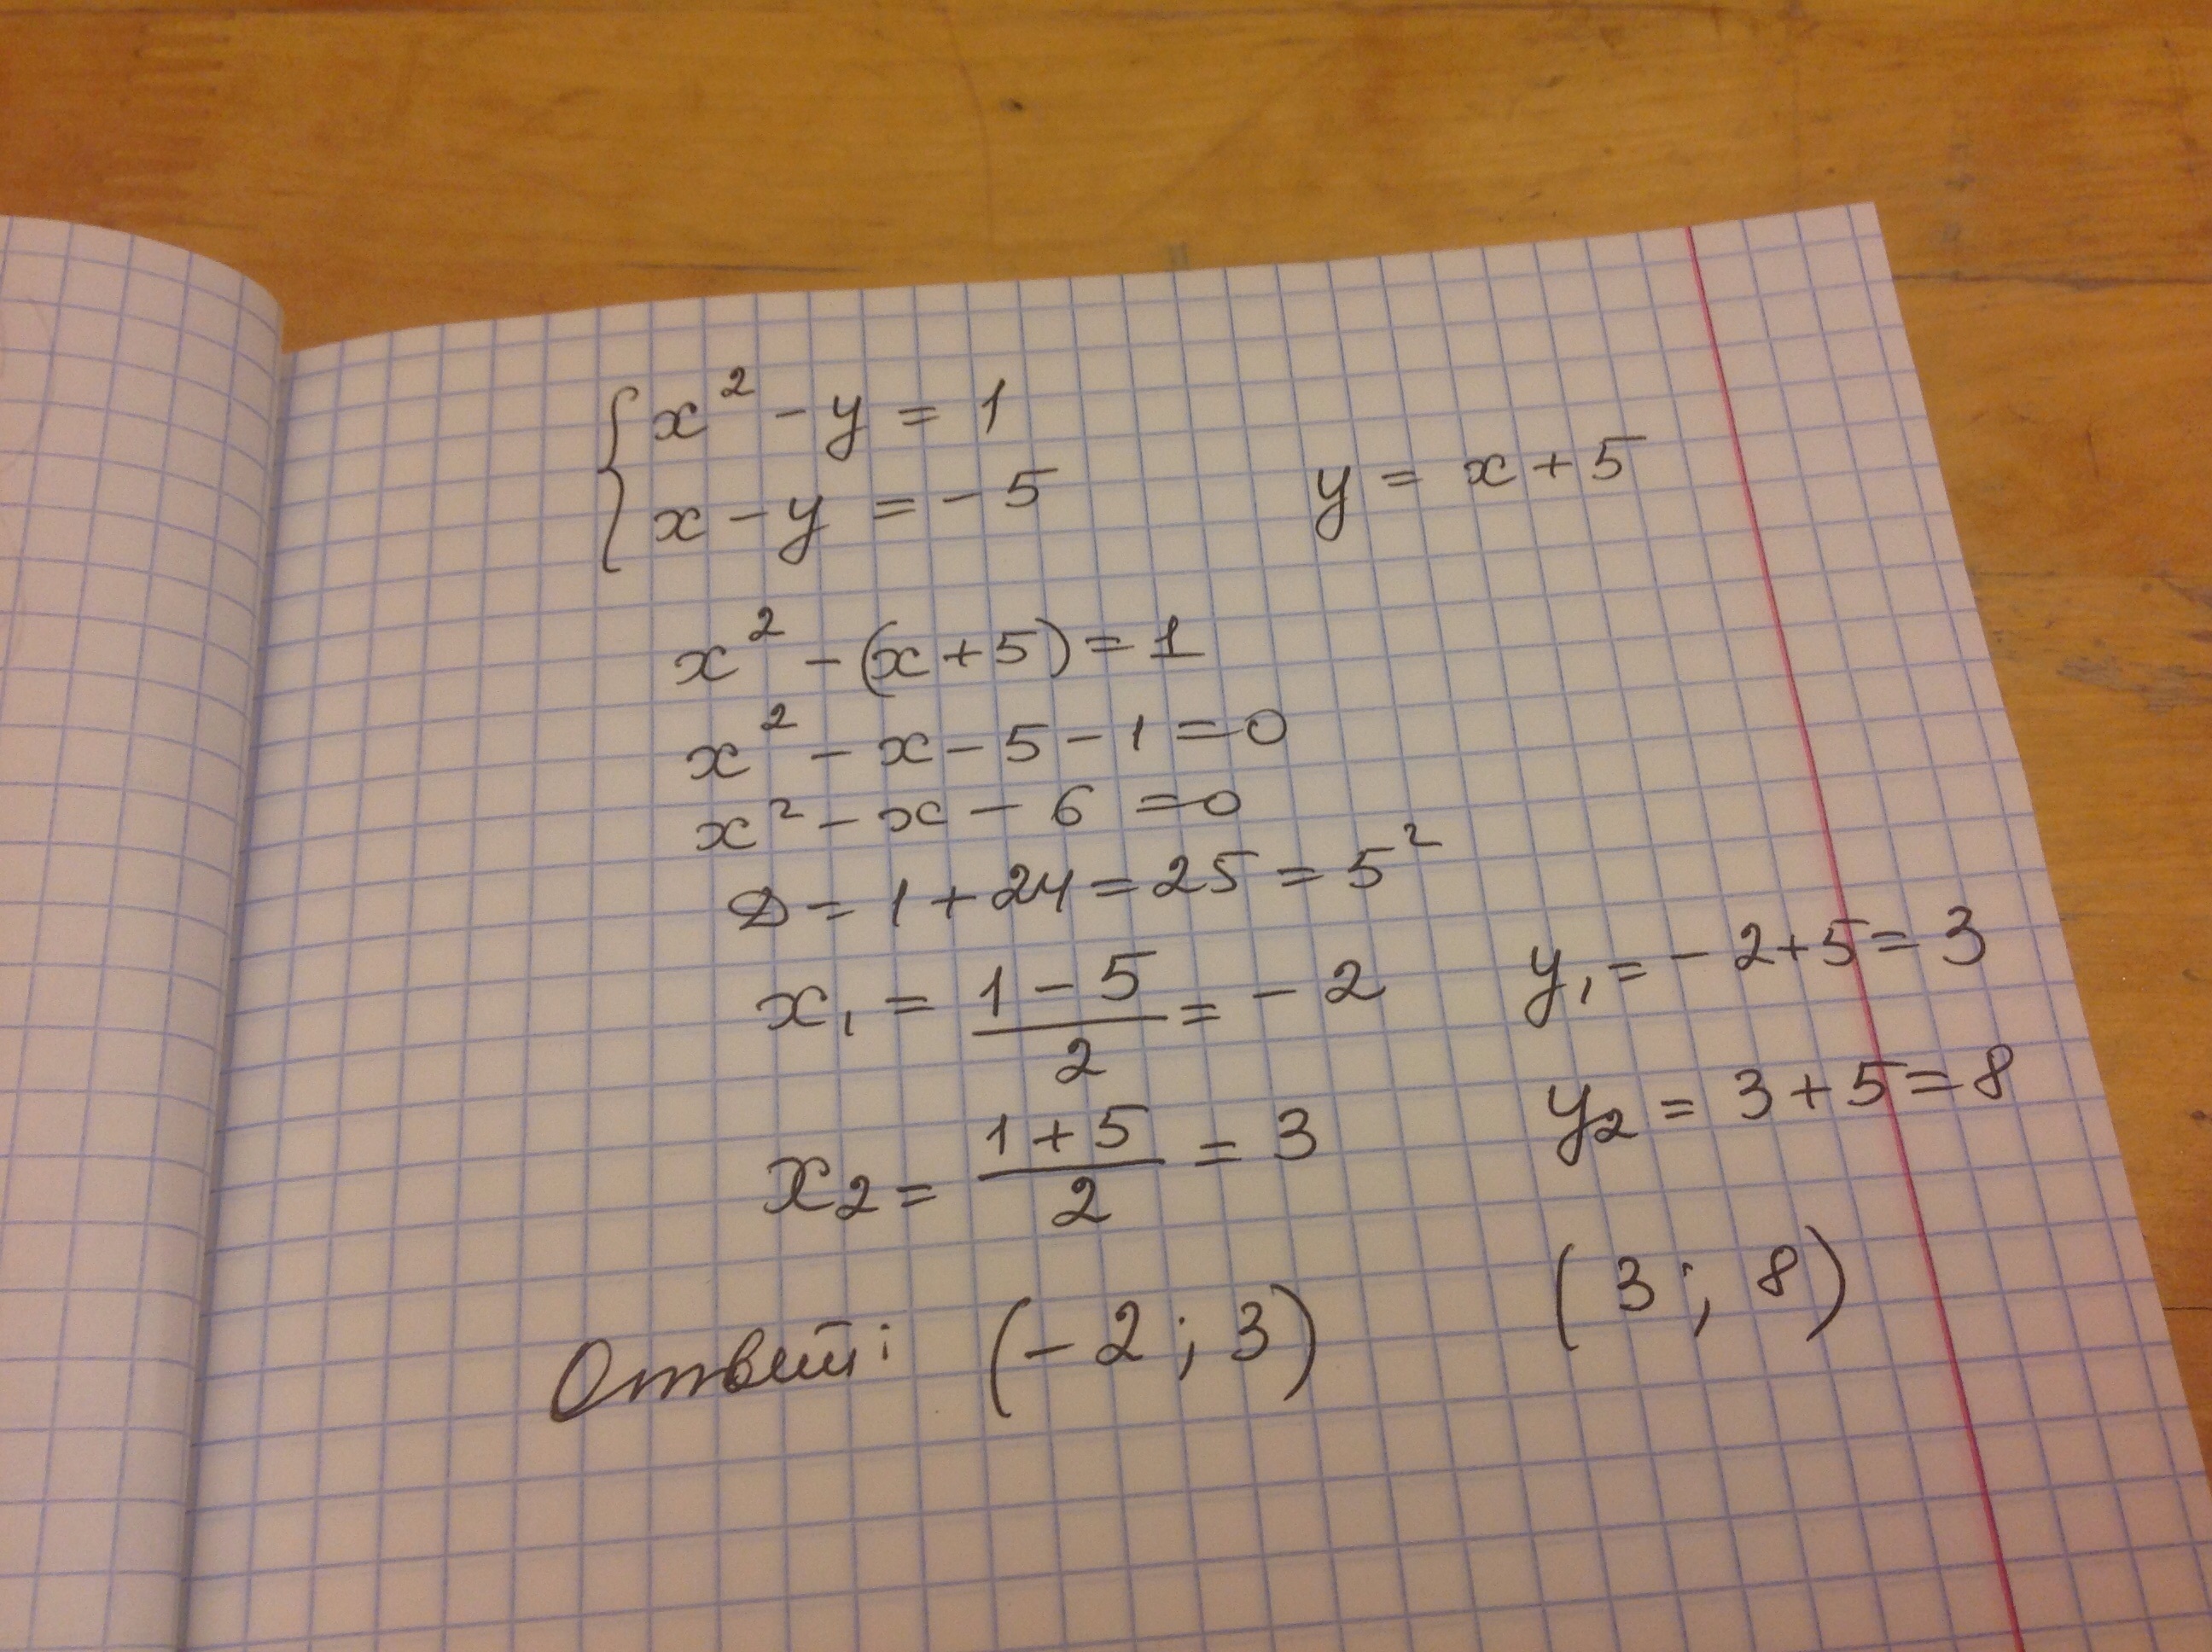 x² - y = 1
x - y = -5 y = x + 5
x² - (x + 5) = 1
x² - x - 5 - 1 = 0
x² - x - 6 = 0
D = 1 + 24 = 25 = 5²
x₁ = (1 - 5)/2 = -2 y₁ = -2 + 5 = 3
x₂ = (1 + 5)/2 = 3 y₂ = 3 + 5 = 8
Ответ: (-2; 3) (3; 8)